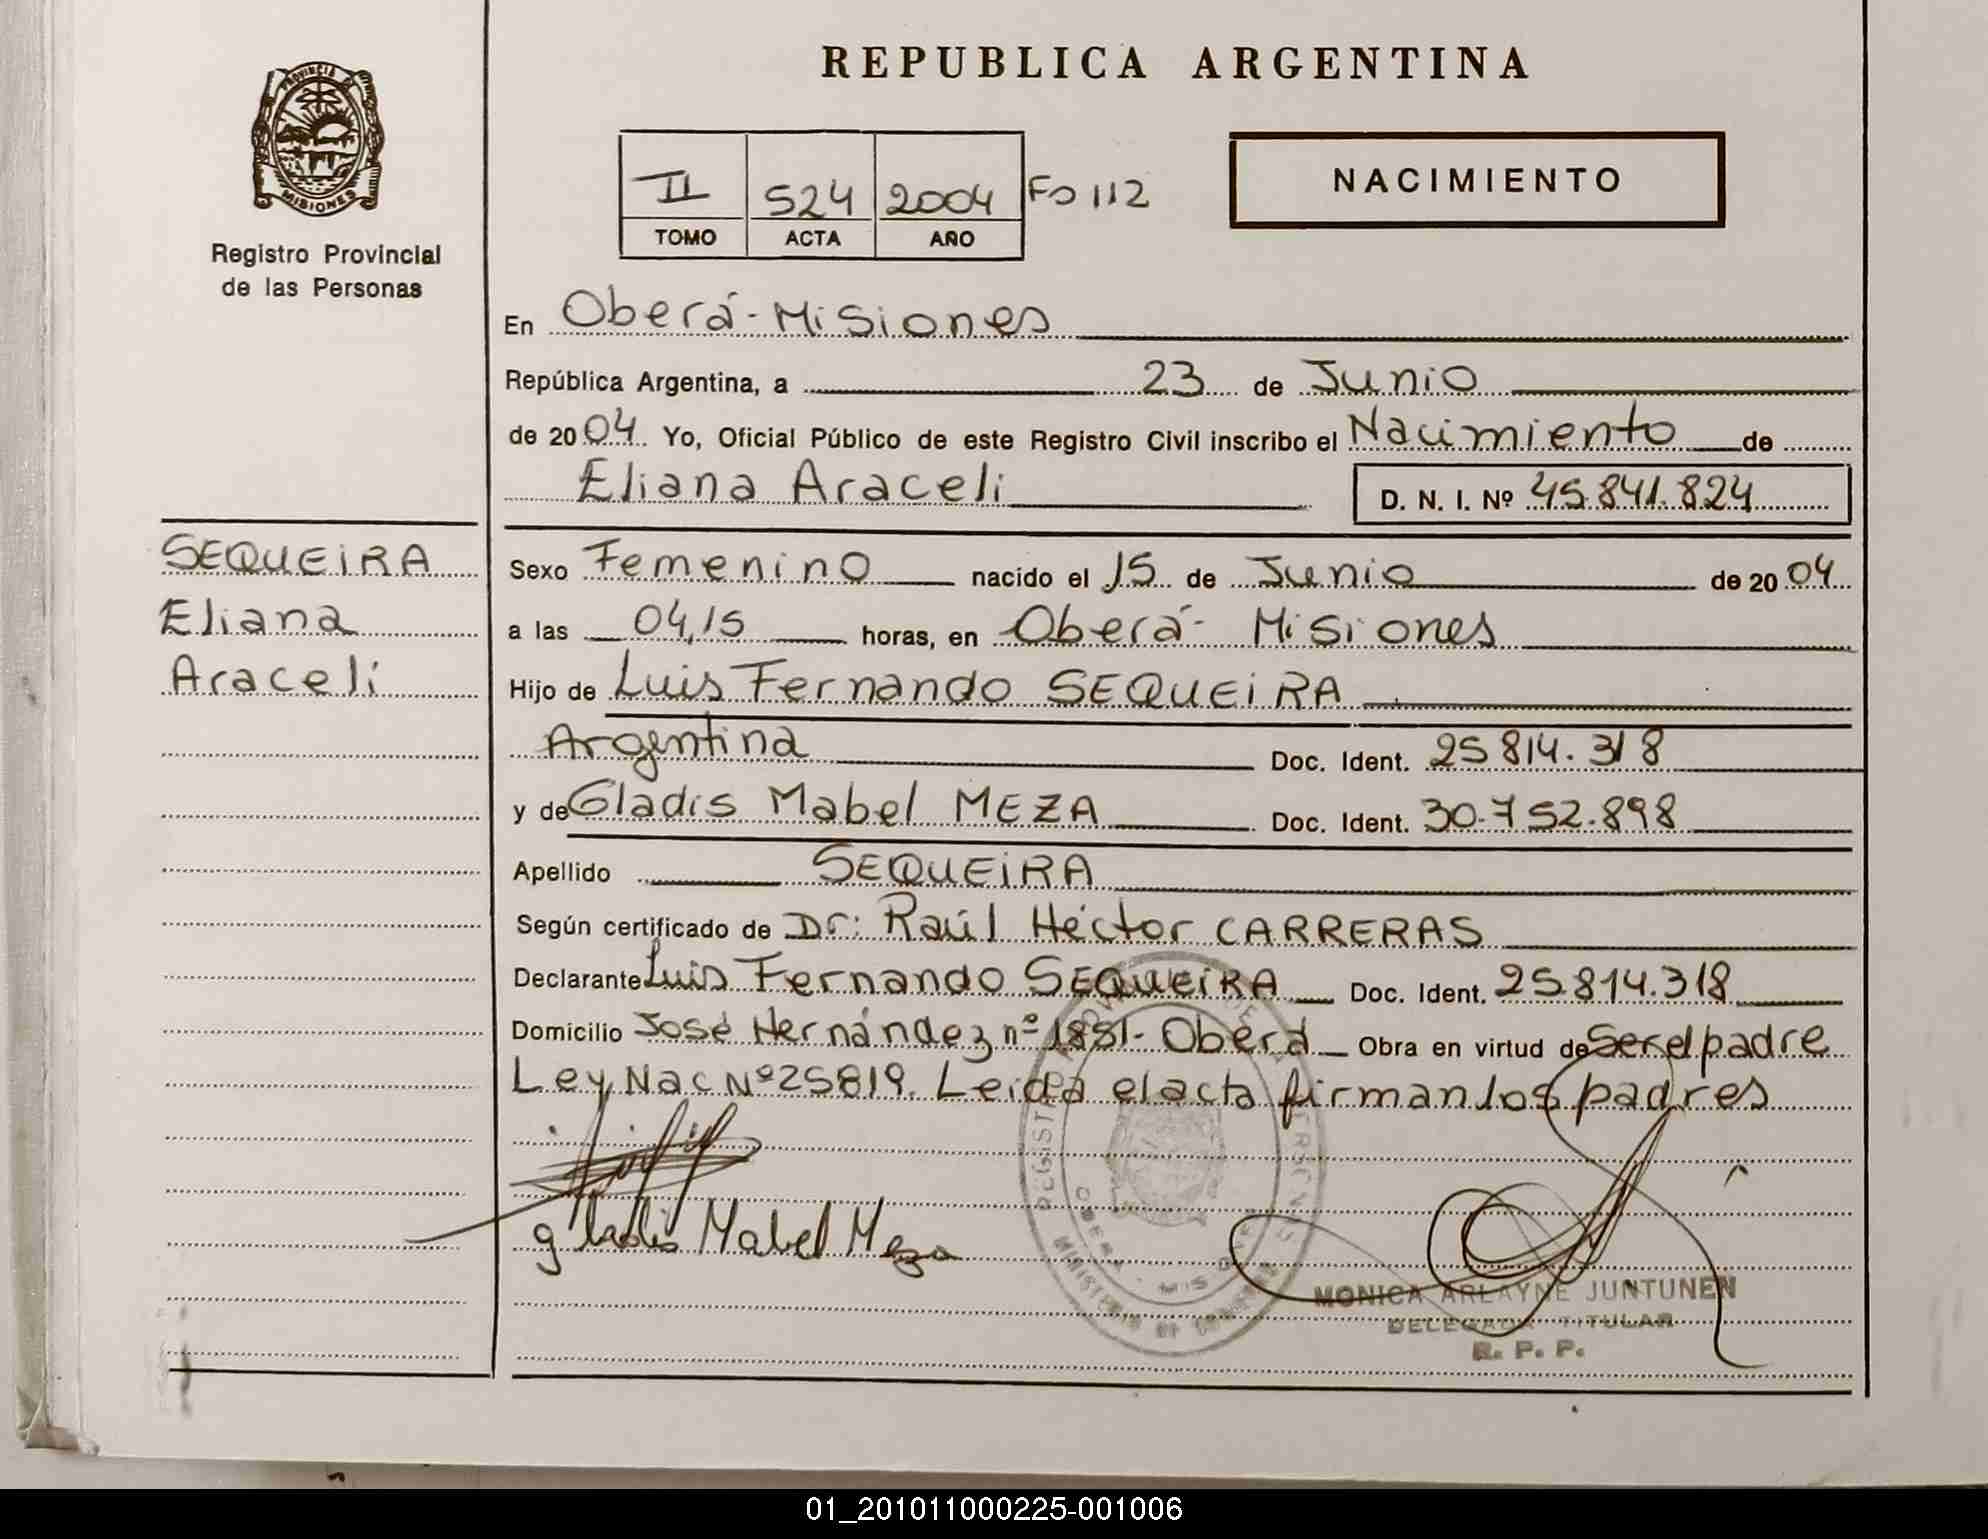 REPUBLICA ARGENTINA
PROVINCIA DE
MISIONES
Registro Provincial
de las Personas
II 524 2004 Fo 112
TOMO ACTA AÑO
NACIMIENTO
En Oberá - Misiones
República Argentina, a 23 de Junio
de 2004 Yo, Oficial Público de este Registro Civil inscribo el Nacimiento de
Eliana Araceli D. N. I. Nº 45.841.824
SEQUEIRA
Eliana
Araceli
Sexo Femenino nacido el 15 de Junio de 2004
a las 04,15 horas, en Oberá - Misiones
Hijo de Luis Fernando SEQUEIRA
Argentina Doc. Ident. 25.814.318
y de Gladis Mabel MEZA Doc. Ident. 30.752.898
Apellido SEQUEIRA
Según certificado de Dr: Raúl Héctor CARRERAS
Declarante Luis Fernando SEQUEIRA Doc. Ident. 25.814.318
Domicilio José Hernández nº 1881 - Oberá Obra en virtud de Ser el padre
Ley Nac Nº 25819. Leida el acta firman los padres
gladis Mabel Meza
MONICA ARLAYNE JUNTUNEN
DELEGADA TITULAR
R. P. P.
01_201011000225-001006